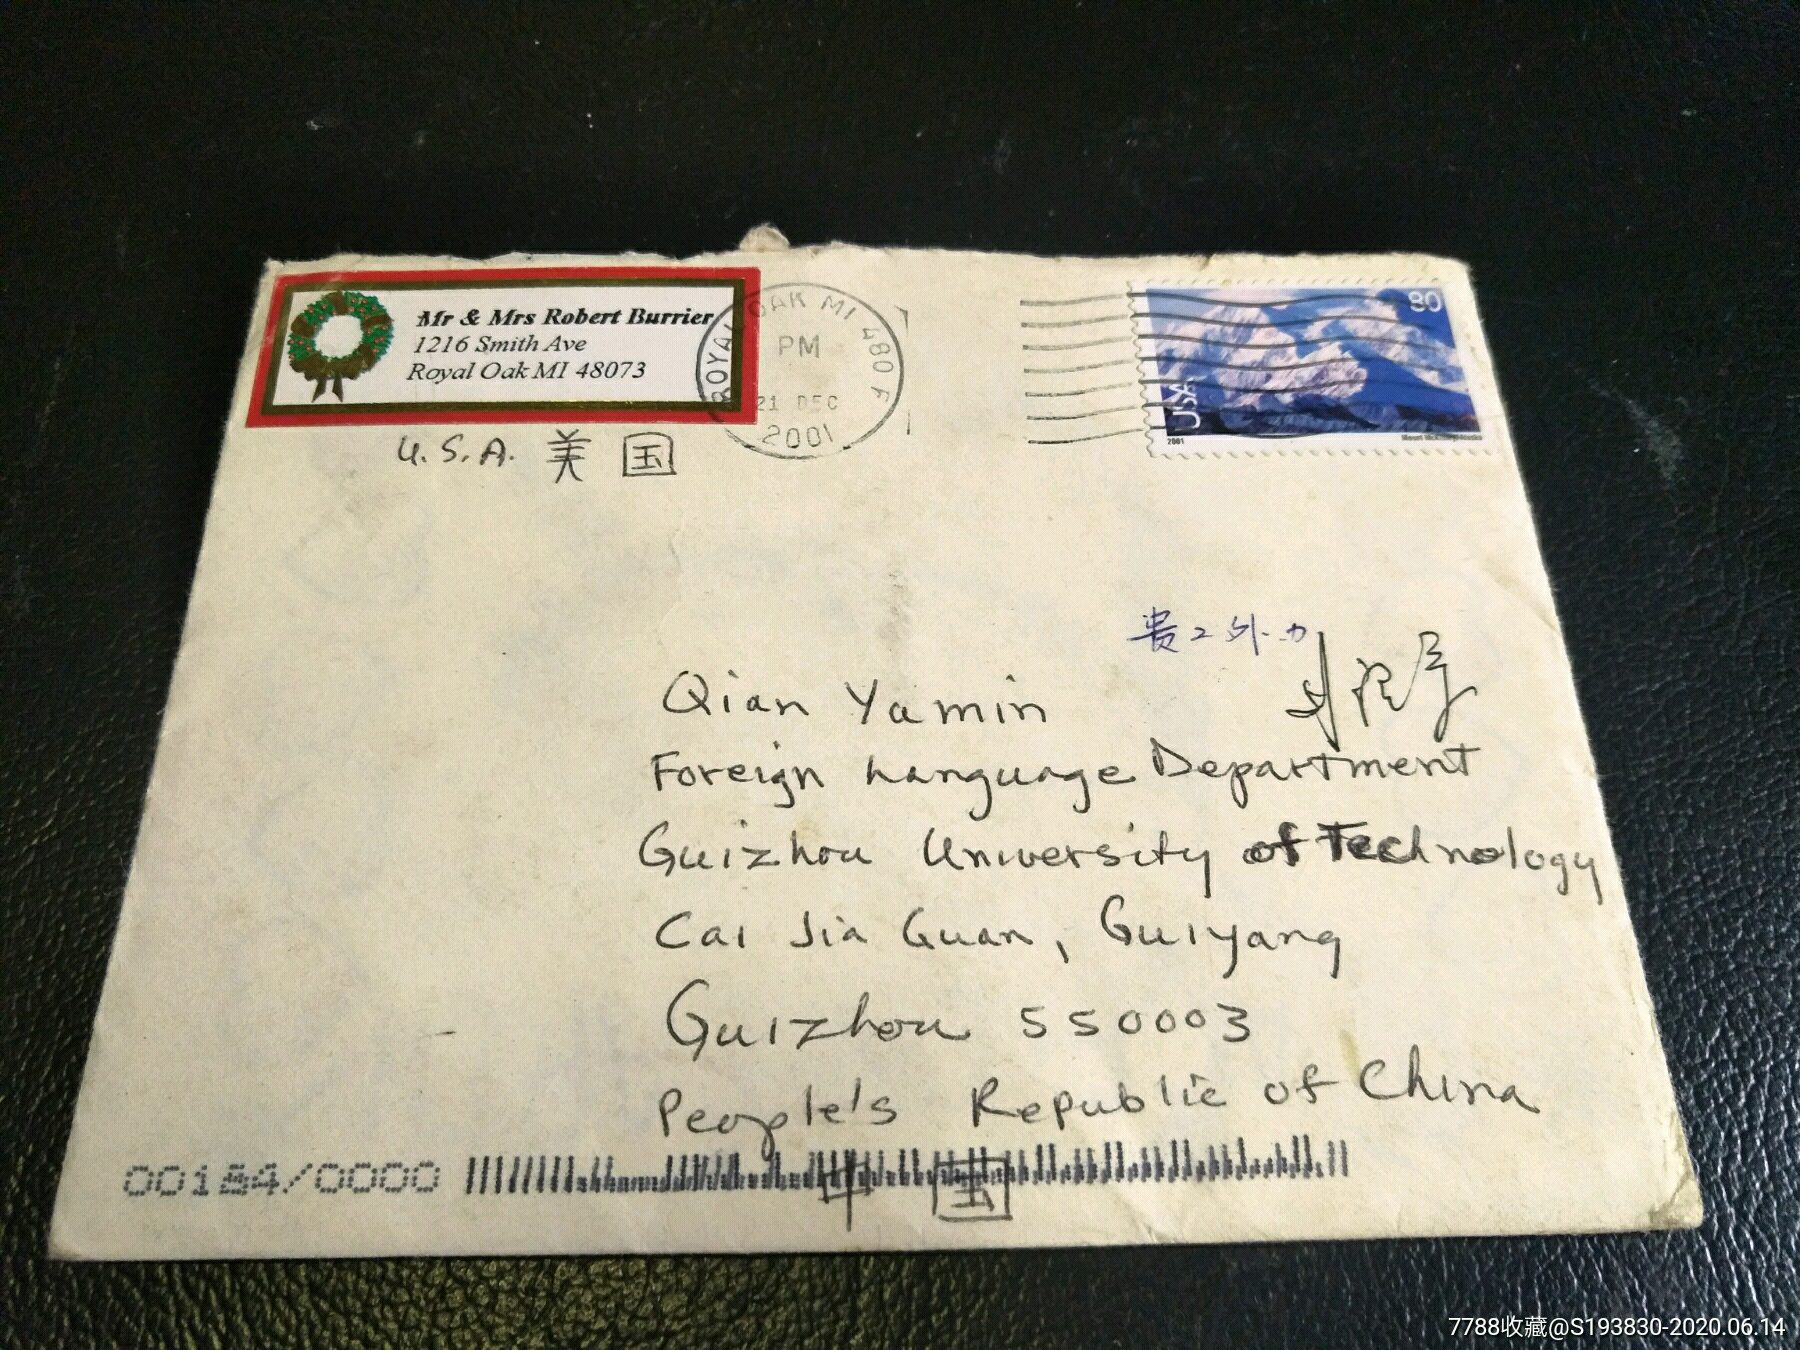 Mr & Mrs Robert Burrier
1216 Smith Ave
Royal Oak MI 48073
U.S.A. 美国
ROYAL OAK MI 480 F
PM
21 DEC
2001
80
USA
2001
贵工外
Qian Yamin
Foreign Language Department
Guizhou University of Technology
Cai Jia Guan, Guiyang
Guizhou 550003
People's Republic of China
00184/0000
中国
7788收藏@S193830-2020.06.14